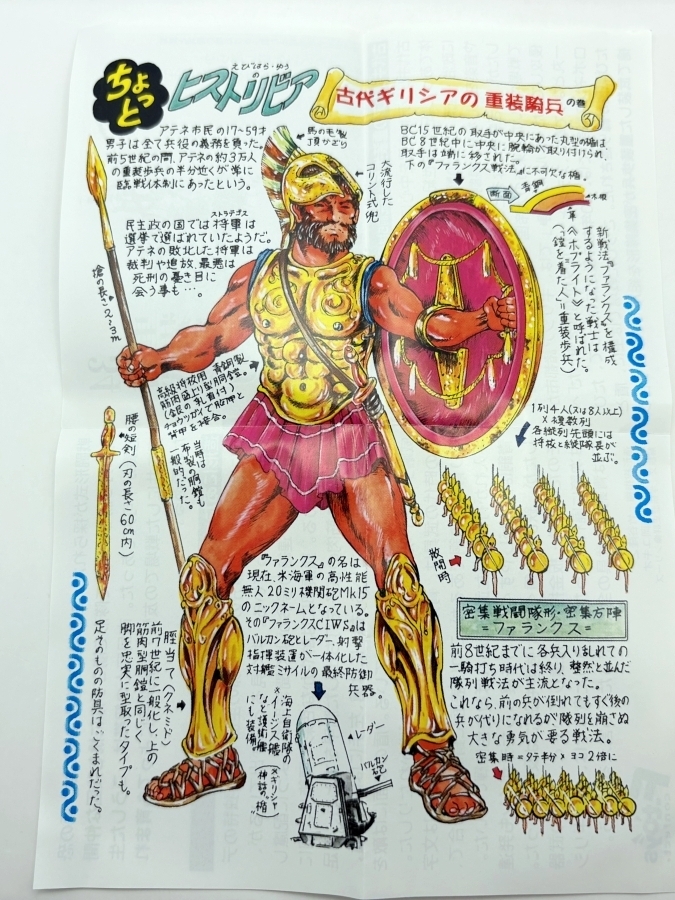 えびはら・ゆう
ちょっと
ヒストリビア
古代ギリシアの重装騎兵の巻
アテネ市民の17〜59才
男子は全て兵役の義務を負った。
前5世紀の間、アテネの約3万人
の重装歩兵の半分近くが常に
臨戦体制にあったという。
馬の毛製
頂かざり
大流行した
コリント式兜
BC15世紀の取手が中央にあった丸型の楯は、
BC8世紀中に中央に腕輪が取り付けられ、
取手は端に移された。
下の『ファランクス戦法』に不可欠な楯。
断面
青銅
木板
革
ストラテゴス
民主政の国では将軍は
選挙で選ばれていたようだ。
アテネの敗北した将軍は
裁判や追放、最悪は
死刑の憂き目に
会う事も…。
槍の長さ2〜3m
新戦法『ファランクス』を構成
するようになった戦士は
《ホプライト》と呼ばれた。
(「鎧を着た人」＝重装歩兵)
高級将校用 青銅製
筋肉盛上り型胴鎧。
チョウツガイで胸甲と
背甲を接合。
当時は
布製の胴鎧も
一般的だった。
腰の短剣(刃の長さ60cm内)
1列4人(又は8人)以上
×複数列
各縦列先頭には
将校と縦隊長が
並ぶ。
散開時
『ファランクス』の名は
現在、米海軍の高性能
無人20ミリ機関砲Mk15
のニックネームとなっている。
その『ファランクスCIWS』は
バルカン砲とレーダー、射撃
指揮装置が一体化した
対艦ミサイルの最終防御
兵器。
密集戦闘隊形・密集方陣
＝ファランクス＝
前8世紀までに各兵入り乱れての
一騎打ち時代は終り、整然と並んだ
隊列戦法が主流となった。
これなら、前の兵が倒れてもすぐ後の
兵が代りになれるが隊列を崩さぬ
大きな勇気が要る戦法。
密集時＝タテ半分×ヨコ2倍に
脛当て《クネミド》
前7世紀に一般化し、上の
筋肉型胴鎧と同じく
脚を忠実に型取ったタイプも。
足そのものの防具はごくまれだった。
海上自衛隊の
×イージス艦
など護衛艦
にも装備。
×ギリシャ
神話の「楯」
レーダー
バルカン砲